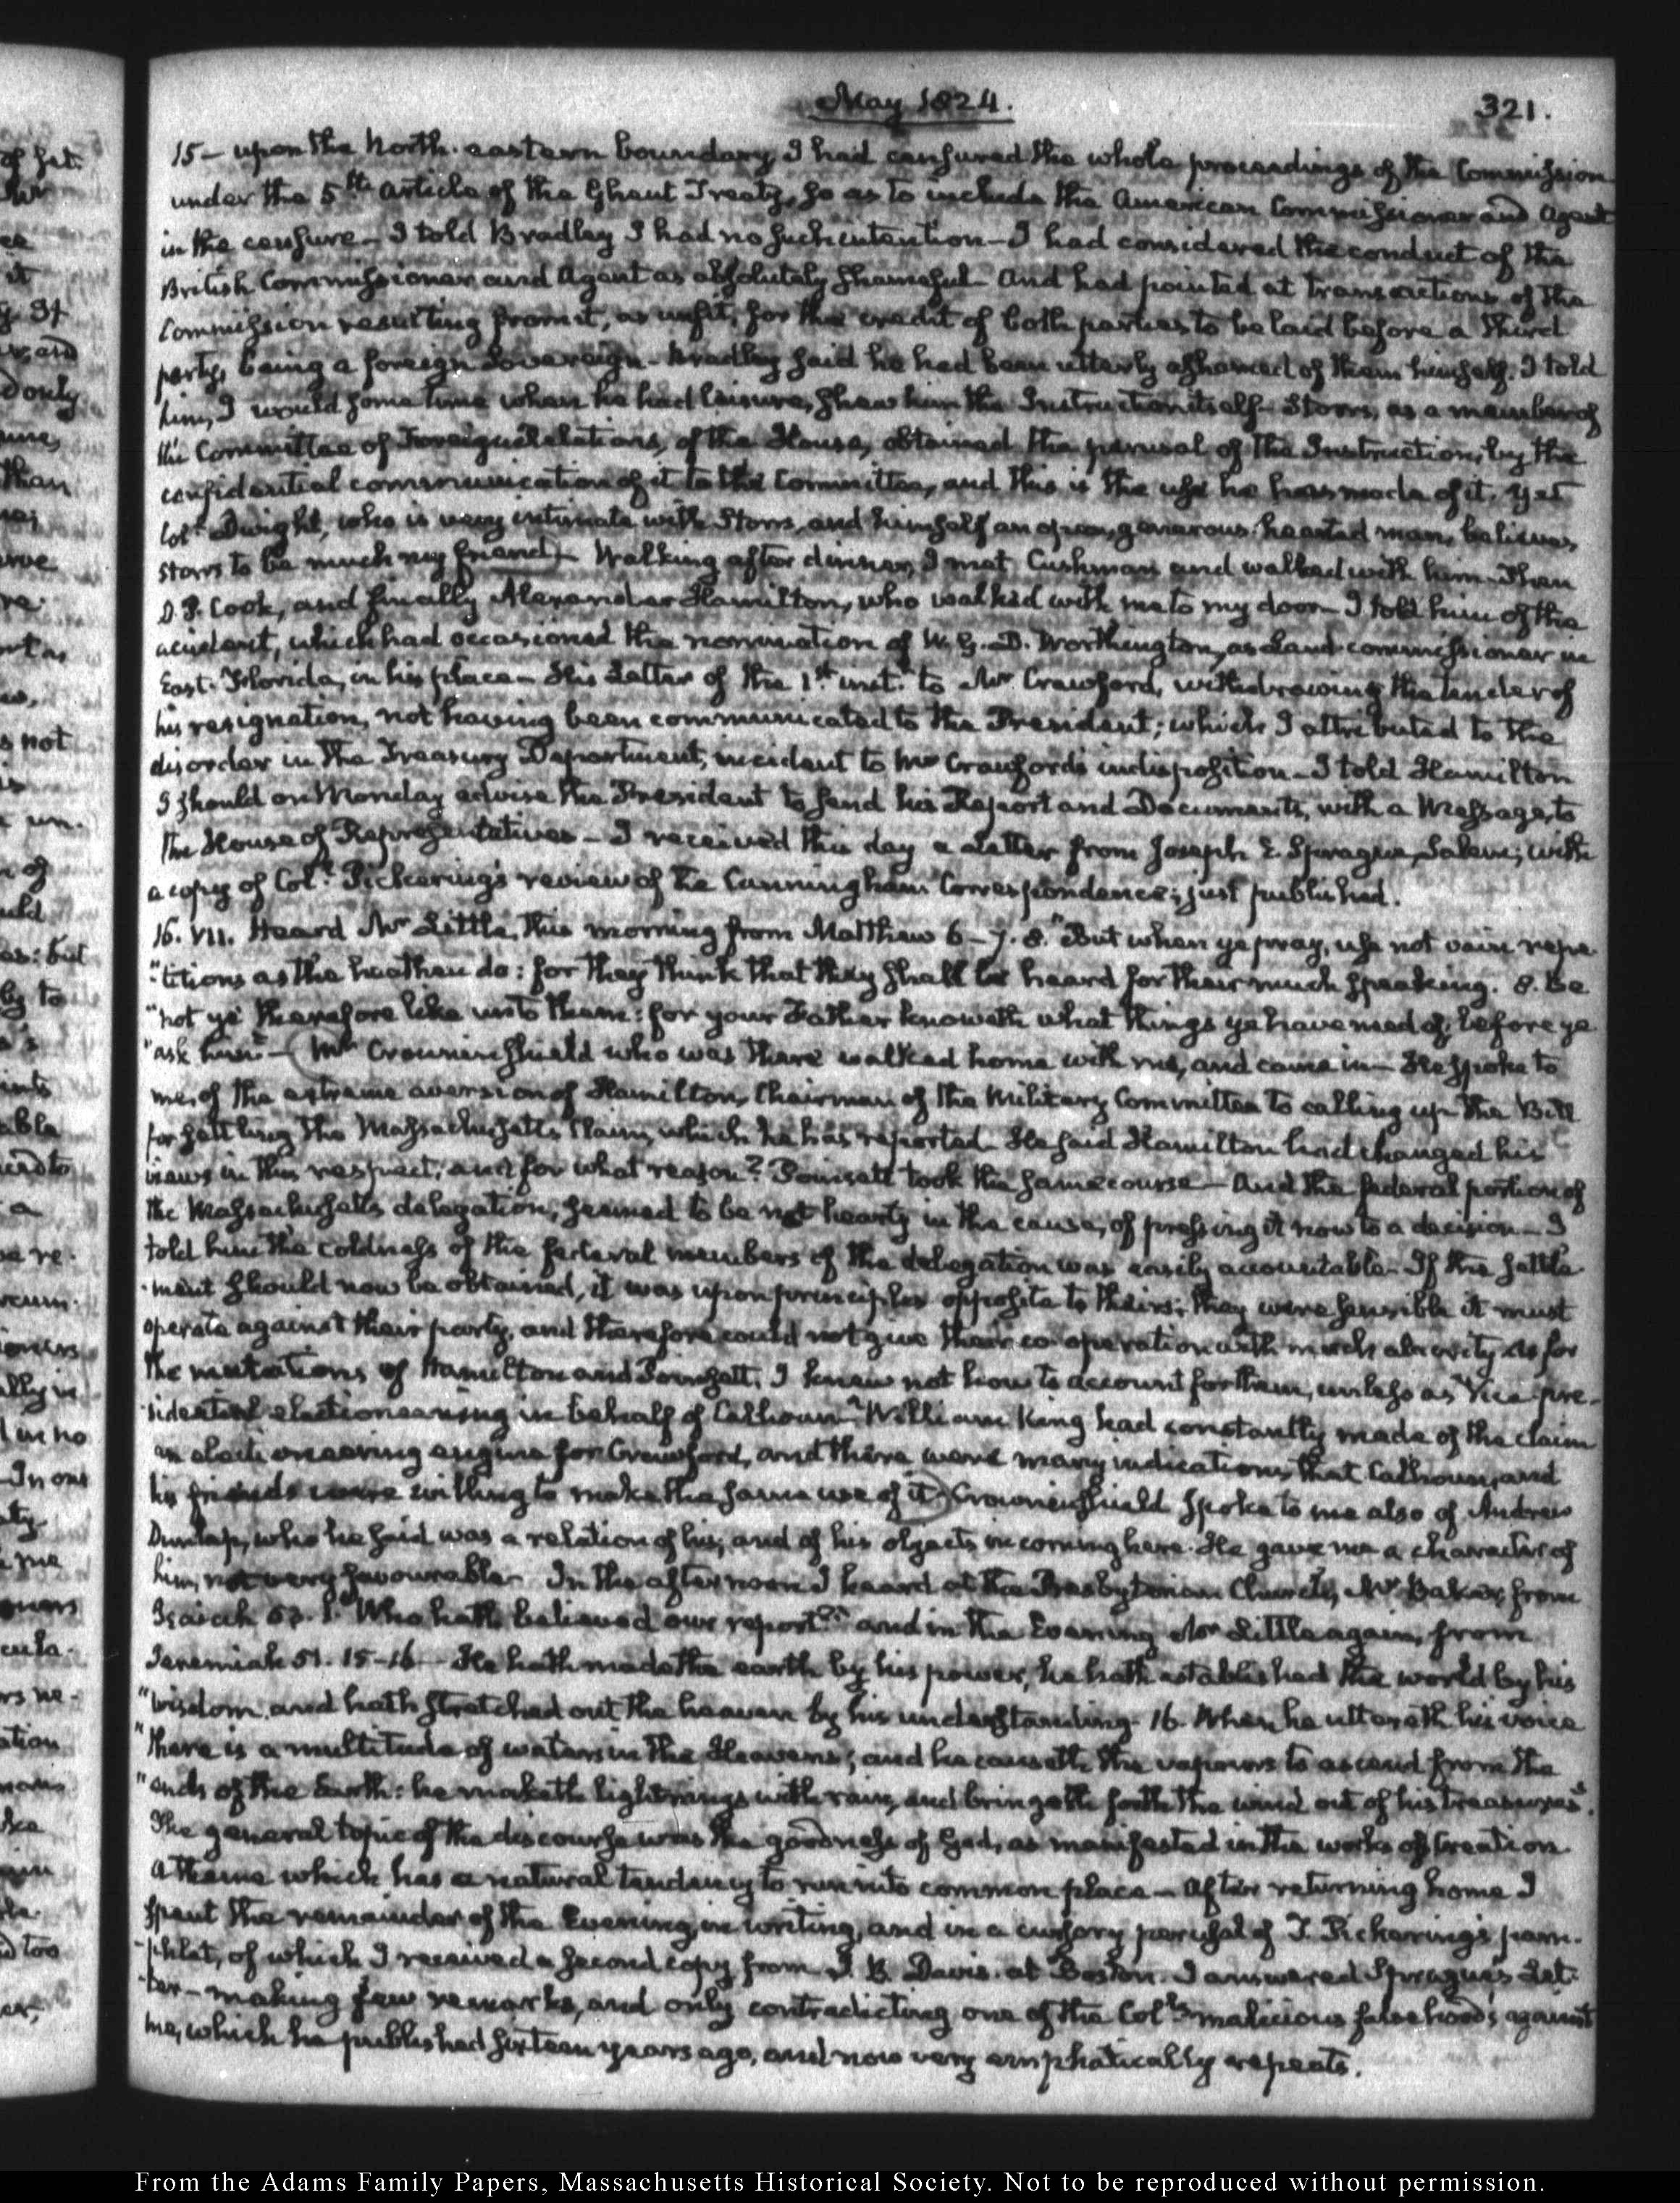 May 1824.
321.
15 — upon the North-eastern boundary, I had censured the whole proceedings of the Commission
under the 5th. article of the Ghent Treaty, so as to include the American Commissioner and Agent
in the censure — I told Bradley I had no such intention — I had considered the conduct of the
British Commissioner and Agent as absolutely shameful — And had pointed at transactions of the
Commission resulting from it, as unfit, for the credit of both parties to be laid before a third
party, being a foreign Sovereign — Bradley said he had been utterly ashamed of them himself. I told
him, I would some time when he had leisure, shew him the Instruction itself — Storrs, as a member of
the Committee of Foreign Relations, of the House, obtained the perusal of the Instruction, by the
confidential communication of it to the Committee, and this is the use he has made of it. Yet
Col. Dwight, who is very intimate with Storrs, and himself an open, generous-hearted man, believes
Storrs to be much my friend) — Walking after dinner, I met Cushman and walked with him. Then
D. P. Cook, and finally Alexander Hamilton, who walked with me to my door — I told him of the
accident, which had occasioned the nomination of W. G. D. Worthington, as Land-commissioner in
East-Florida, in his place — His Letter of the 1st. inst. to Mr. Crawford, withdrawing the tender of
his resignation, not having been communicated to the President; which I attributed to the
disorder in the Treasury Department, incident to Mr Crawford's indisposition — I told Hamilton
I should on Monday advise the President to send his Report and Documents, with a Message, to
the House of Representatives — I received this day a Letter from Joseph E. Sprague, Salem; with
a copy of Col. Pickering's review of the Cunningham Correspondence; just published.
16. VII. Heard Mr Little, this morning from Matthew 6 — 7. 8. "But when ye pray, use not vain repe-
"titions as the heathen do: for they think that they shall be heard for their much speaking. 8. Be
"not ye therefore like unto them: for your Father knoweth what things ye have need of, before ye
"ask him" — (Mr Crowninshield who was there walked home with me, and came in — He spoke to
me, of the extreme aversion of Hamilton, Chairman of the Military Committee to calling up the Bill
for settling the Massachusetts Claim, which he has reported — He said Hamilton had changed his
views in this respect; and for what reason? Poinsett took the same course — And the federal portion of
the Massachusetts delegation, seemed to be not hearty in the cause, of pressing it now to a decision — I
told him the coldness of the federal members of the delegation was easily accountable — If the settle-
-ment should now be obtained, it was upon principles opposite to theirs; they were sensible it must
operate against their party, and therefore could not give their co-operation with much alacrity. As for
the mutations of Hamilton and Poinsett, I knew not how to account for them, unless as Vice-pre-
-sidential electioneering in behalf of Calhoun — William King had constantly made of the claim
an electioneering engine for Crawford, and there were many indications, that Calhoun, and
his friends were willing to make the same use of it) Crowninshield spoke to me also of Andrew
Dunlap, who he said was a relation of his; and of his objects in coming here. He gave me a character of
him, not very favourable — In the afternoon I heard at the Presbyterian Church, Mr Baker, from
Isaiah 53. 1. "Who hath believed our report?" and in the Evening Mr Little again, from
Jeremiah 51. 15-16 — He hath made the earth by his power, he hath established the world by his
"wisdom, and hath stretched out the heaven by his understanding — 16. When he uttereth his voice
"there is a multitude of waters in the Heavens; and he causeth the vapours to ascend from the
"ends of the Earth: he maketh lightnings with rain, and bringeth forth the wind out of his treasures".
The general topic of the discourse was the goodness of God, as manifested in the works of Creation
a theme which has a natural tendency to run into common place — After returning home I
spent the remainder of the Evening, in writing, and in a cursory perusal of T. Pickering's pam-
-phlet, of which I received a second copy from J. B. Davis. at Boston. I answered Sprague's Let-
-ter — making few remarks, and only contradicting one of the Col's malicious falsehoods against
me, which he published sixteen years ago, and now very emphatically repeats.
From the Adams Family Papers, Massachusetts Historical Society. Not to be reproduced without permission.